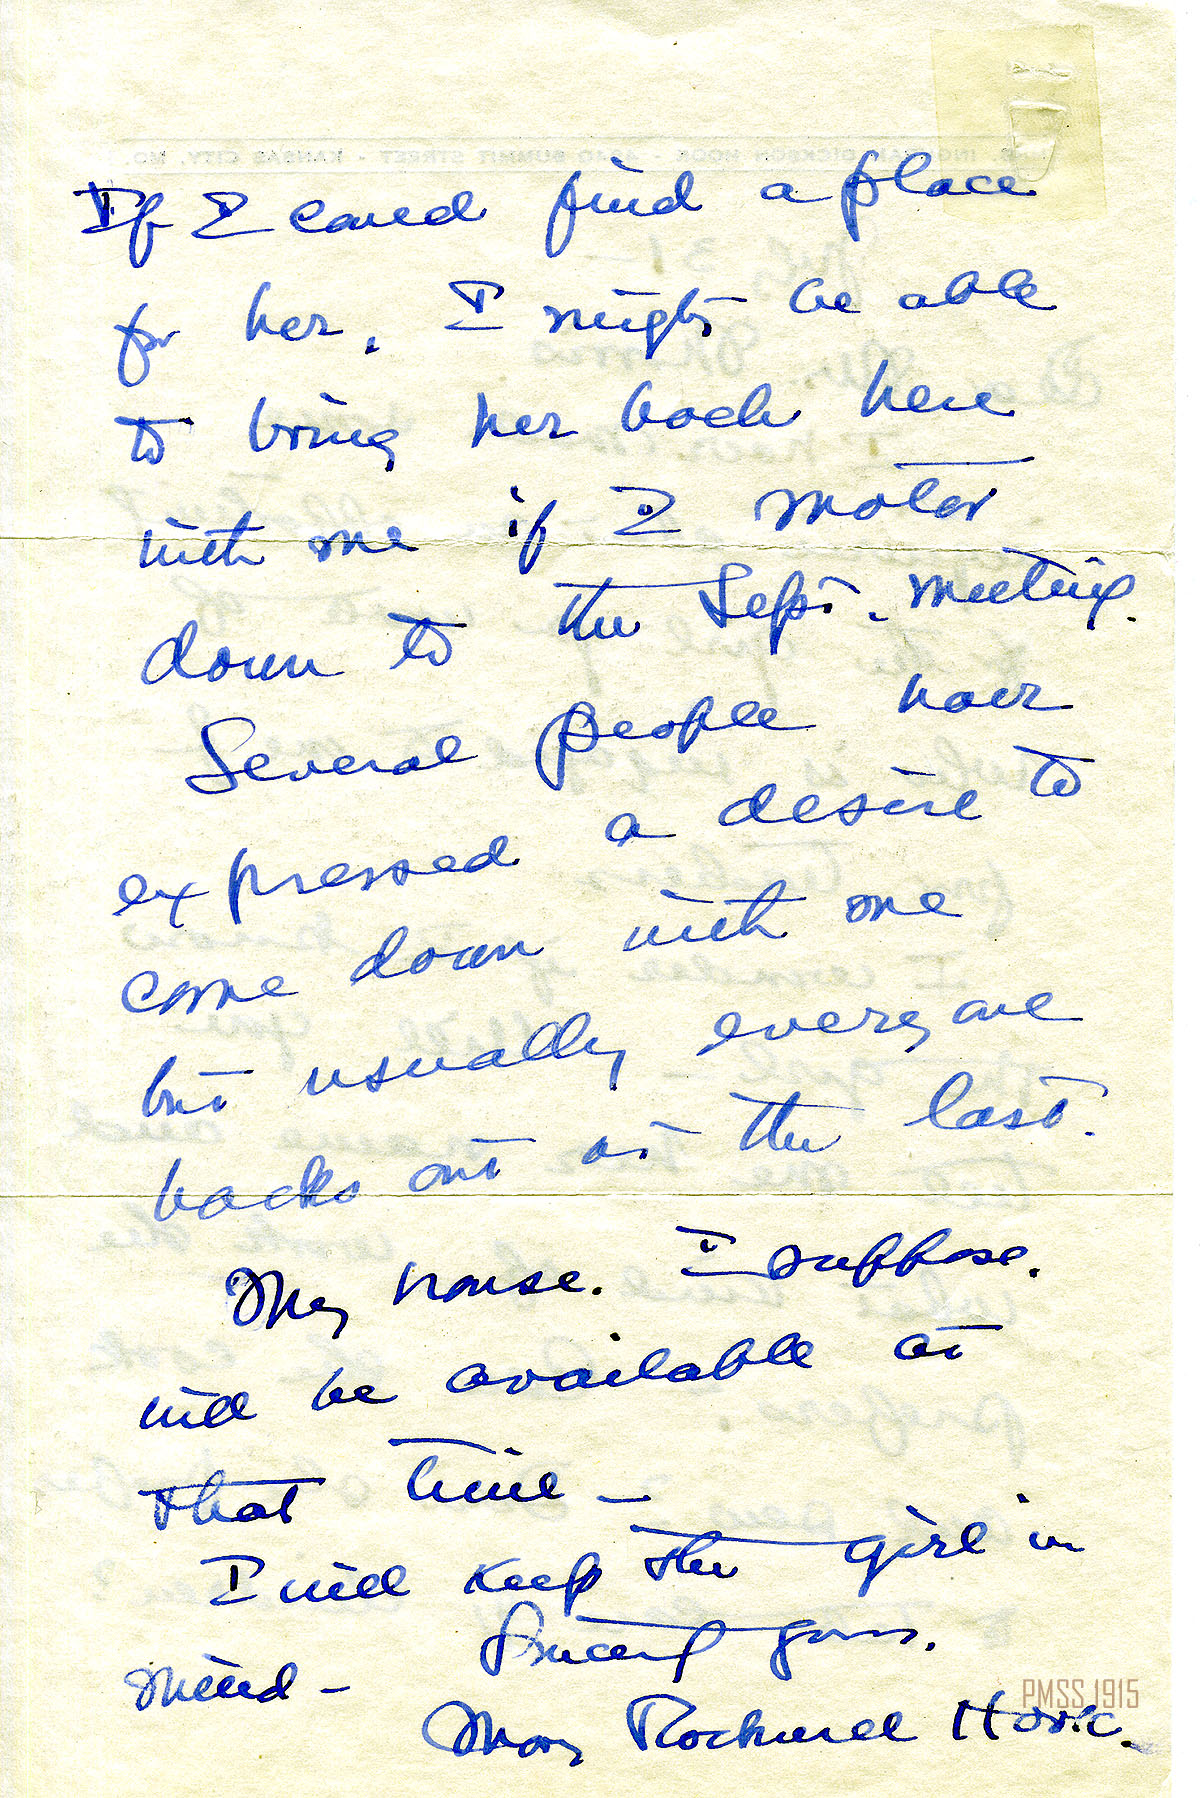 If I coued find a place
for her, I might be able
to bring her back here
with me if I motor
down to the Sept. meeting.
Several people have
expressed a desire to
come down with me
but usually every one
backs out at the last.
My house. I suppose.
will be available at
that time —
I will keep the girl in
mind —
Sincerely yours.
Mary Rockwell Hook.
PMSS 1915